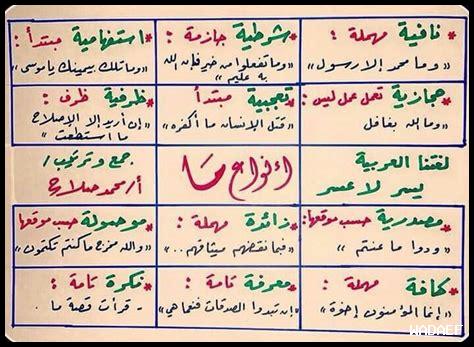 * نافية مهملة :
«وما محمد إلا رسول»
* شرطية جازمة :
«وما تفعلوا من خير فإن الله
به عليم»
* استفهامية مبتدأ :
«وما تلك بيمينك يا موسى»
* حجازية تعمل عمل ليس :
«وما الله بغافل»
* تعجبية مبتدأ
«قتل الإنسان ما أكفره»
* ظرفية ظرف :
«إن أريد إلا الإصلاح
ما استطعت»
لغتنا العربية
يسر لا عسر
أنواع ما
جمع وترتيب /
أ/ محمد صلاح
* مصدرية حسب موقعها :
«ودوا ما عنتم»
* زائدة مهملة :
«فبما نقضهم ميثاقهم..»
* موصولة حسب موقعها
«والله مخرج ما كنتم تكتمون»
* كافة مهملة :
«إنما المؤمنون إخوة»
* معرفة تامة :
«إن تبدوا الصدقات فنعما هي»
* نكرة تامة :
- قرأت قصة ما .
WADAEF